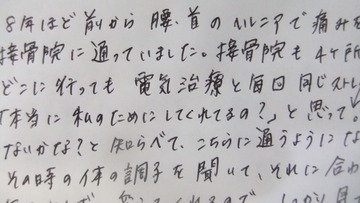 8年ほど前から腰、首のヘルニアで痛みを
接骨院に通っていました。接骨院も4ヶ所
どこに行っても電気治療と毎回同じストレ
「本当に私のためにしてくれてるの?」と思って。
ないかな?と知らべて、こちらに通うようにな
その時の体の調子を聞いて、それに合わ